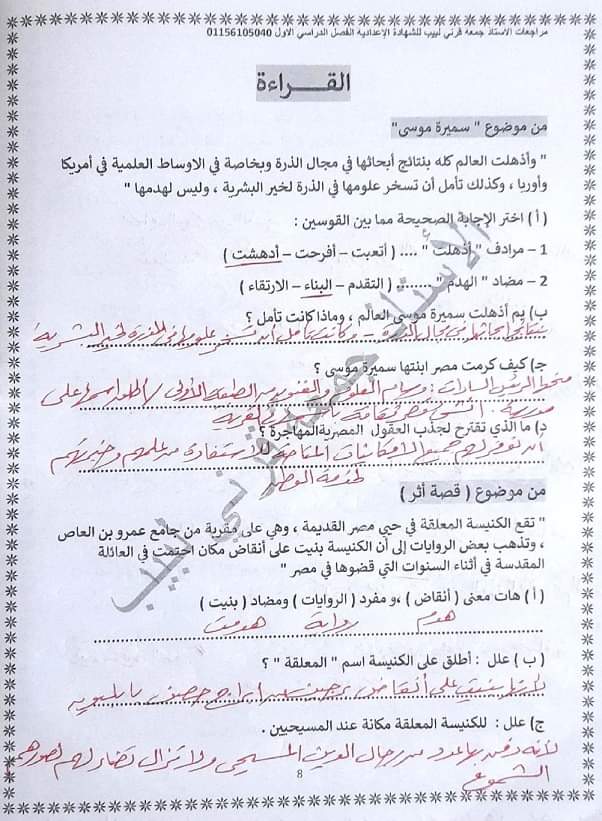 مراجعات الاستاذ جمعه قرني لبيب للشهادة الإعدادية الفصل الدراسي الاول 01156105040
القـــراءة
من موضوع " سميرة موسى"
" وأذهلت العالم كله بنتائج أبحاثها في مجال الذرة وبخاصة في الاوساط العلمية في أمريكا
وأوربا ، وكذلك تأمل أن تسخر علومها في الذرة لخير البشرية ، وليس لهدمها "
( أ ) اختر الإجابة الصحيحة مما بين القوسين :
1 – مرادف " أذهلت " .... ( أتعبت – أفرحت – أدهشت )
2 – مضاد " الهدم " ........ ( التقدم – البناء – الارتقاء )
ب) بم أذهلت سميرة موسى العالم ، وماذا كانت تأمل ؟
بنتائج أبحاثها في مجال الذرة – وكانت تأمل أن تسخر علومها في الذرة لخير البشرية
ج) كيف كرمت مصر ابنتها سميرة موسى ؟
منحها الرئيس السادات وسام العلوم والفنون من الطبقة الأولى / أطلق اسمها على
مدرسة . أنشئ قصر ثقافة
د) ما الذي تقترح لجذب العقول المصرية المهاجرة ؟
أن نوفر لهم جميع الامكانيات المتاحة للاستفادة من علمهم وخبرتهم
لخدمة الوطن
من موضوع ( قصة أثر )
" تقع الكنيسة المعلقة في حيي مصر القديمة ، وهي على مقربة من جامع عمرو بن العاص
، وتذهب بعض الروايات إلى أن الكنيسة بنيت على أنقاض مكان احتمت في العائلة
المقدسة في أثناء السنوات التي قضوها في مصر "
( أ ) هات معنى ( أنقاض ) ،و مفرد ( الروايات ) ومضاد ( بنيت )
هدم رواية هدمت
( ب ) علل : أطلق على الكنيسة اسم " المعلقة " ؟
لأنها بنيت على أنقاض برجين من أبراج حصن بابليون
ج) علل : للكنيسة المعلقة مكانة عند المسيحيين .
لأنه دفن بها عدد من رجال الدين المسيحي ولا تزال تضاء لهم لصورهم
الشموع
8
الأستاذ جمعه قرني لبيب